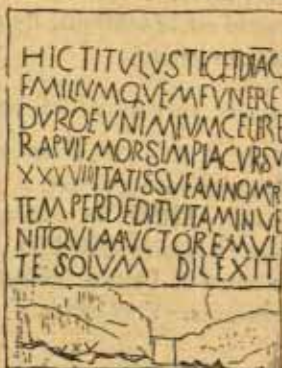 HIC TITVLVS TECET DIAC
FMILIVM QVEM FVNERE
DVRO EV NIMIVM CELERE
RAPVIT MORS IMPIA CVRSV
XXXVIII ITATIS SVE ANNO MOR
TEM PERDEDIT VITAM INVE
NIT QVIA AVCTOREM VI
TE SOLVM DILEXIT